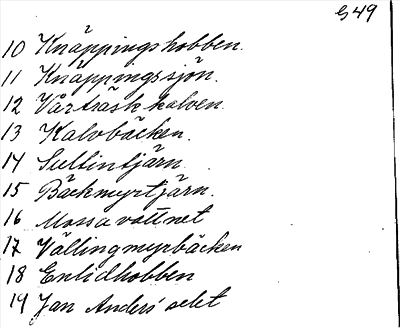 G 49
10 Knäppingshobben.
11 Knäppingssjön.
12 Vårträskhalven.
13 Kalvbäcken.
14 Sultintjärn.
15 Bäckmyrtjärn.
16 Mossavattnet
17 Vällingmyrbäcken
18 Enlidhobben
19 Jan Anders' selet